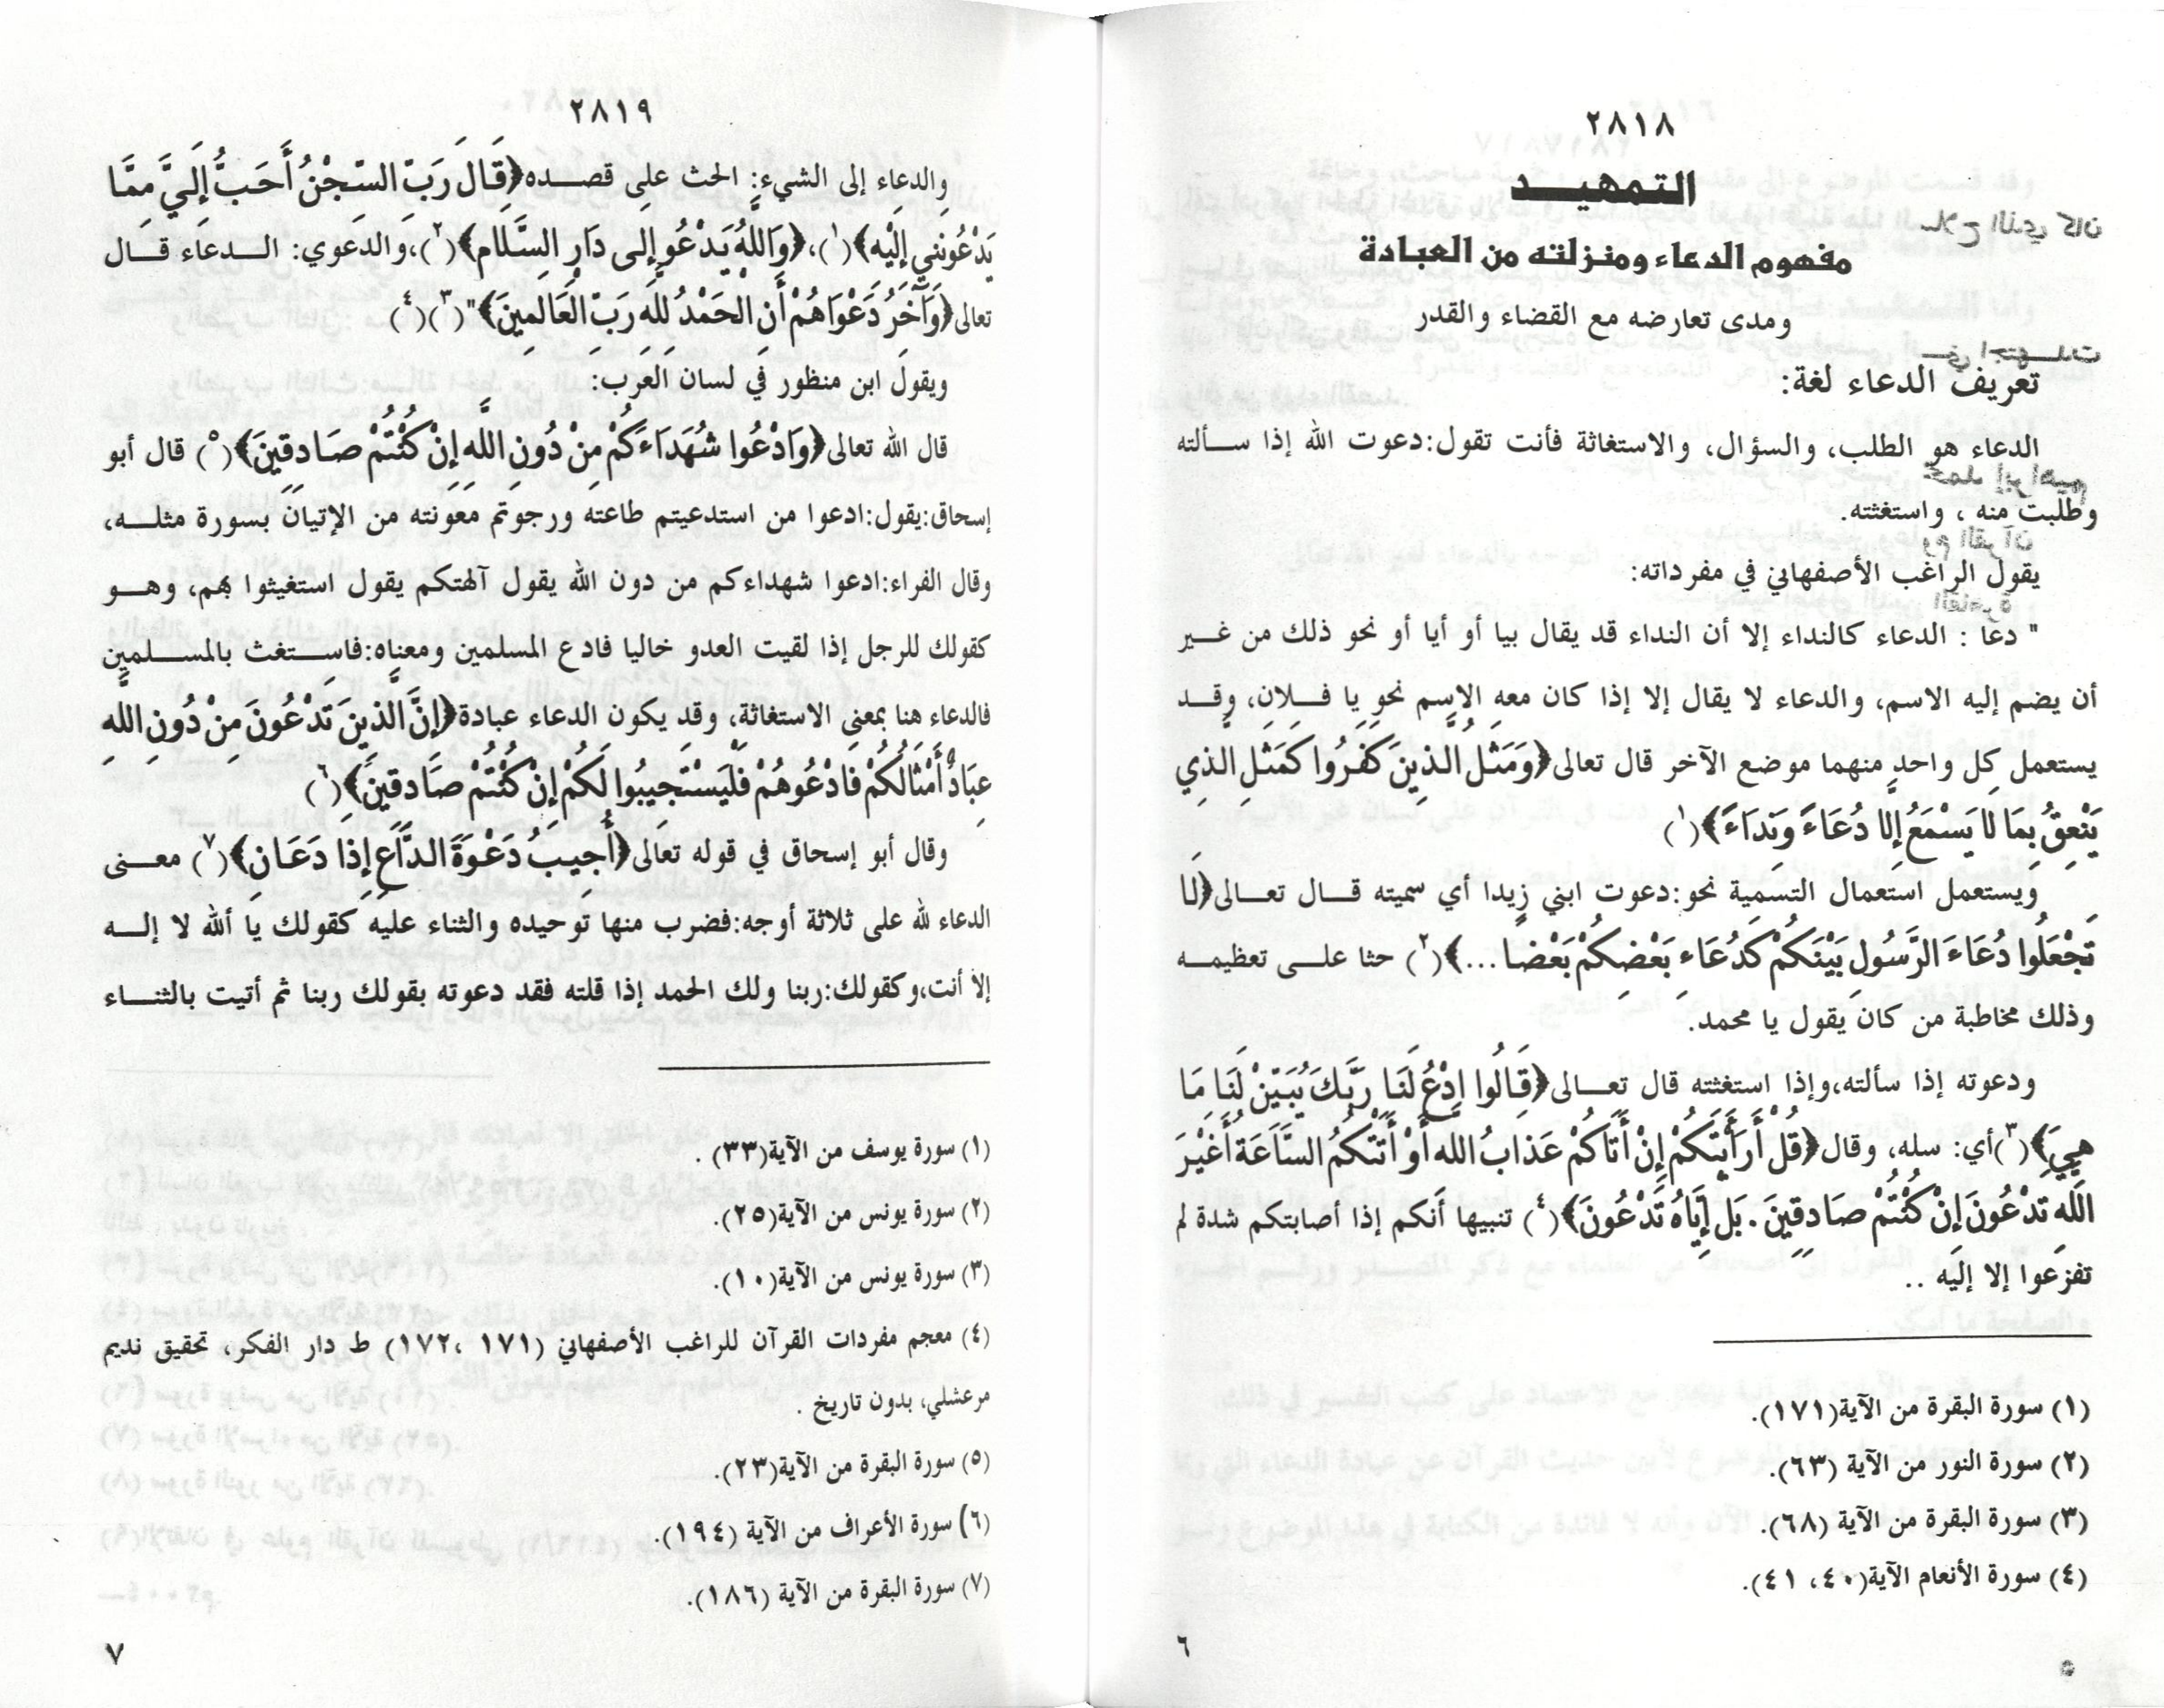 ٢٨١٨
التمهيد
مفهوم الدعاء ومنزلته من العبادة
ومدى تعارضه مع القضاء والقدر
تعريف الدعاء لغة:
الدعاء هو الطلب، والسؤال، والاستغاثة فأنت تقول:دعوت الله إذا سألته
وطلبت منه ، واستغثته.
يقول الراغب الأصفهاني في مفرداته:
" دعا : الدعاء كالنداء إلا أن النداء قد يقال بيا أو أيا أو نحو ذلك من غير
أن يضم إليه الاسم، والدعاء لا يقال إلا إذا كان معه الاسم نحو يا فلان، وقد
يستعمل كل واحد منهما موضع الآخر قال تعالى﴿وَمَثَلُ الَّذِينَ كَفَرُوا كَمَثَلِ الَّذِي
يَنْعِقُ بِمَا لَا يَسْمَعُ إِلَّا دُعَاءً وَنِدَاءً﴾(١)
ويستعمل استعمال التسمية نحو:دعوت ابني زيدا أي سميته قال تعالى﴿لَا
تَجْعَلُوا دُعَاءَ الرَّسُولِ بَيْنَكُمْ كَدُعَاءِ بَعْضِكُمْ بَعْضًا...﴾(٢) حثا على تعظيمه
وذلك مخاطبة من كان يقول يا محمد.
ودعوته إذا سألته،وإذا استغثته قال تعالى﴿قَالُوا ادْعُ لَنَا رَبَّكَ يُبَيِّنْ لَنَا مَا
هِيَ﴾(٣)أي: سله، وقال﴿قُلْ أَرَأَيْتَكُمْ إِنْ أَتَاكُمْ عَذَابُ اللَّهِ أَوْ أَتَتْكُمُ السَّاعَةُ أَغَيْرَ
اللَّهِ تَدْعُونَ إِنْ كُنْتُمْ صَادِقِينَ . بَلْ إِيَّاهُ تَدْعُونَ﴾(٤) تنبيها أنكم إذا أصابتكم شدة لم
تفزعوا إلا إليه ..
(١) سورة البقرة من الآية(١٧١).
(٢) سورة النور من الآية (٦٣).
(٣) سورة البقرة من الآية (٦٨).
(٤) سورة الأنعام الآية(٤٠، ٤١).
٦
٢٨١٩
والدعاء إلى الشيء: الحث على قصده﴿قَالَ رَبِّ السِّجْنُ أَحَبُّ إِلَيَّ مِمَّا
يَدْعُونَنِي إِلَيْهِ﴾(١)،﴿وَاللَّهُ يَدْعُو إِلَى دَارِ السَّلَامِ﴾(٢)،والدعوي: الدعاء قال
تعالى﴿وَآخِرُ دَعْوَاهُمْ أَنِ الْحَمْدُ لِلَّهِ رَبِّ الْعَالَمِينَ﴾"(٣)(٤)
ويقول ابن منظور في لسان العرب:
قال الله تعالى﴿وَادْعُوا شُهَدَاءَكُمْ مِنْ دُونِ اللَّهِ إِنْ كُنْتُمْ صَادِقِينَ﴾(٥) قال أبو
إسحاق:يقول:ادعوا من استدعيتم طاعته ورجوتم معونته من الإتيان بسورة مثله،
وقال الفراء:ادعوا شهداءكم من دون الله يقول آلهتكم يقول استغيثوا بهم، وهو
كقولك للرجل إذا لقيت العدو خاليا فادع المسلمين ومعناه:فاستغث بالمسلمين
فالدعاء هنا بمعنى الاستغاثة، وقد يكون الدعاء عبادة﴿إِنَّ الَّذِينَ تَدْعُونَ مِنْ دُونِ اللَّهِ
عِبَادٌ أَمْثَالُكُمْ فَادْعُوهُمْ فَلْيَسْتَجِيبُوا لَكُمْ إِنْ كُنْتُمْ صَادِقِينَ﴾(٦)
وقال أبو إسحاق في قوله تعالى﴿أُجِيبُ دَعْوَةَ الدَّاعِ إِذَا دَعَانِ﴾(٧) معنى
الدعاء لله على ثلاثة أوجه:فضرب منها توحيده والثناء عليه كقولك يا ألله لا إله
إلا أنت،وكقولك:ربنا ولك الحمد إذا قلته فقد دعوته بقولك ربنا ثم أتيت بالثناء
(١) سورة يوسف من الآية(٣٣) .
(٢) سورة يونس من الآية(٢٥).
(٣) سورة يونس من الآية(١٠).
(٤) معجم مفردات القرآن للراغب الأصفهاني (١٧١ ،١٧٢) ط دار الفكر، تحقيق نديم
مرعشلي، بدون تاريخ .
(٥) سورة البقرة من الآية(٢٣).
(٦) سورة الأعراف من الآية (١٩٤).
(٧) سورة البقرة من الآية (١٨٦).
٧